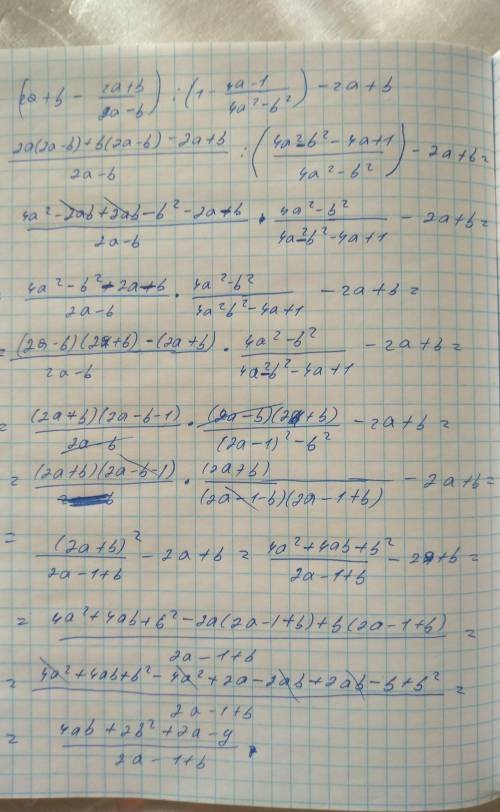 (2a+b - (2a+b)/(2a-b)) : (1 - (4a-1)/(4a²-b²)) - 2a+b
(2a(2a-b)+b(2a-b)-2a+b)/(2a-b) : ((4a²-b²-4a+1)/(4a²-b²)) - 2a+b =
(4a²-2ab+2ab-b²-2a+b)/(2a-b) · (4a²-b²)/(4a²-b²-4a+1) - 2a+b =
(4a²-b²-2a+b)/(2a-b) · (4a²-b²)/(4a²b²-4a+1) - 2a+b =
= ((2a-b)(2a+b)-(2a+b))/(2a-b) · (4a²-b²)/(4a²-b²-4a+1) - 2a+b =
= ((2a+b)(2a-b-1))/(2a-b) · ((2a-b)(2a+b))/((2a-1)²-b²) - 2a+b =
= ((2a+b)(2a-b-1)) · (2a+b)/((2a-1-b)(2a-1+b)) - 2a+b =
= (2a+b)²/(2a-1+b) - 2a+b = (4a²+4ab+b²)/(2a-1+b) - 2a+b =
= (4a²+4ab+b²-2a(2a-1+b)+b(2a-1+b))/(2a-1+b) =
= (4a²+4ab+b²-4a²+2a-2ab+2ab-b+b²)/(2a-1+b) =
= (4ab+2b²+2a-y)/(2a-1+b).